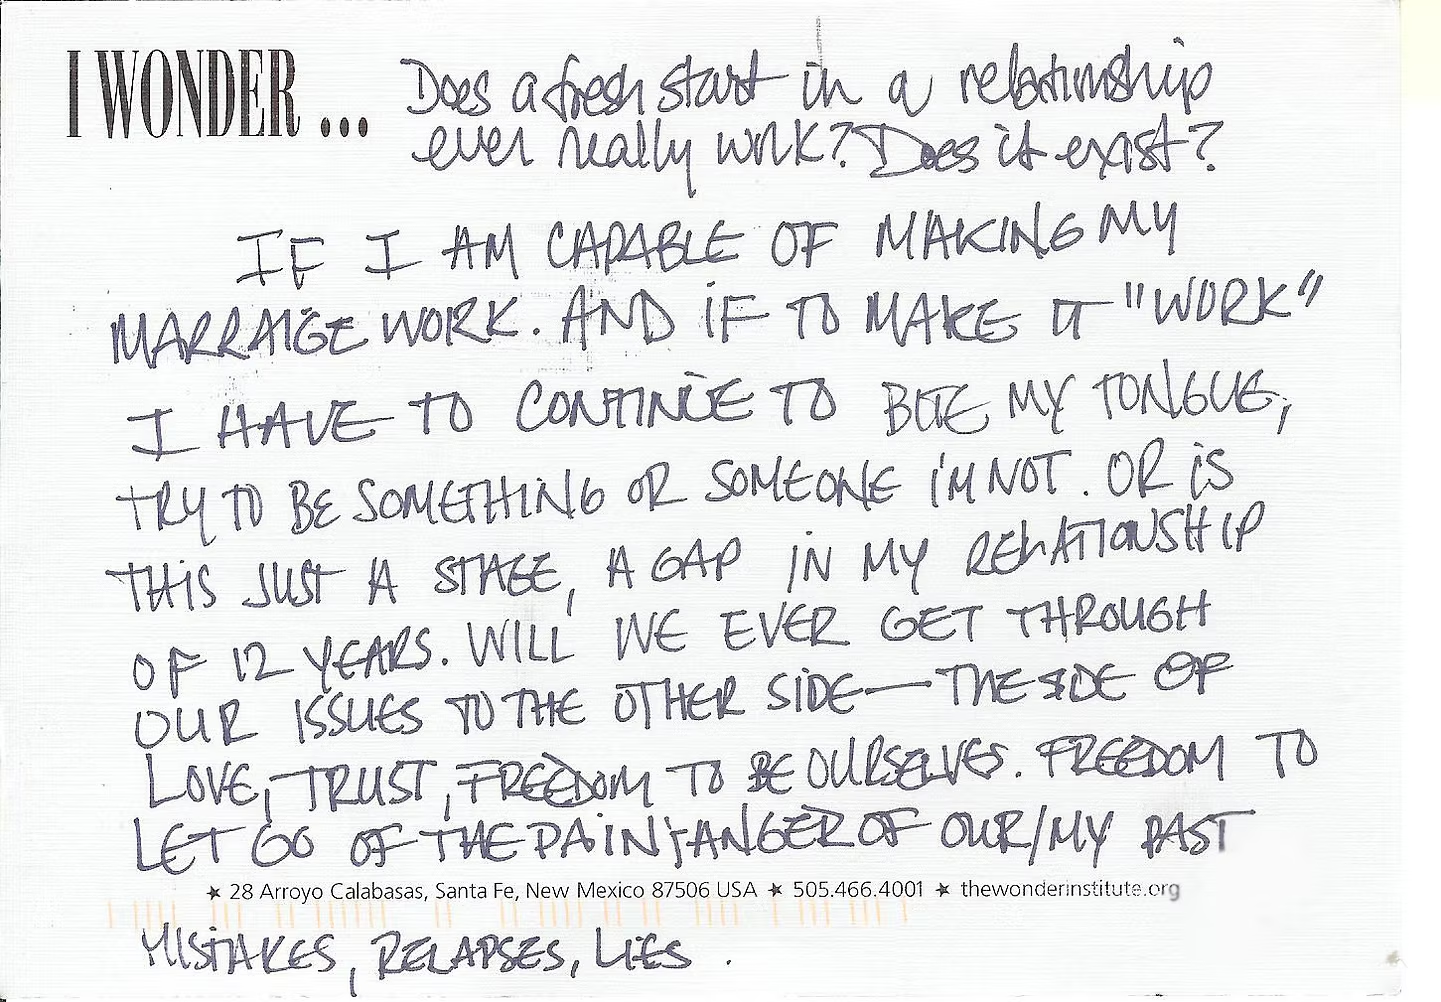 I WONDER ... Does a fresh start in a relationship
ever really work? Does it exist?
IF I AM CAPABLE OF MAKING MY
MARRAIGE WORK. AND IF TO MAKE IT "WORK"
I HAVE TO CONTINUE TO BITE MY TONGUE,
TRY TO BE SOMETHING OR SOMEONE I'M NOT. OR IS
THIS JUST A STAGE, A GAP IN MY RELATIONSHIP
OF 12 YEARS. WILL WE EVER GET THROUGH
OUR ISSUES TO THE OTHER SIDE—THE SIDE OF
LOVE, TRUST, FREEDOM TO BE OURSELVES. FREEDOM TO
LET GO OF THE PAIN + ANGER OF OUR/MY PAST
★ 28 Arroyo Calabasas, Santa Fe, New Mexico 87506 USA ★ 505.466.4001 ★ thewonderinstitute.org
MISTAKES, RELAPSES, LIES.